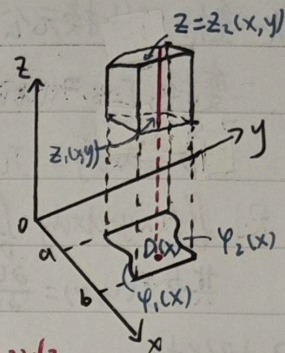 z=z₂(x,y)
z
z₁(x,y)
y
0
a
D(x)
φ₂(x)
b
φ₁(x)
x